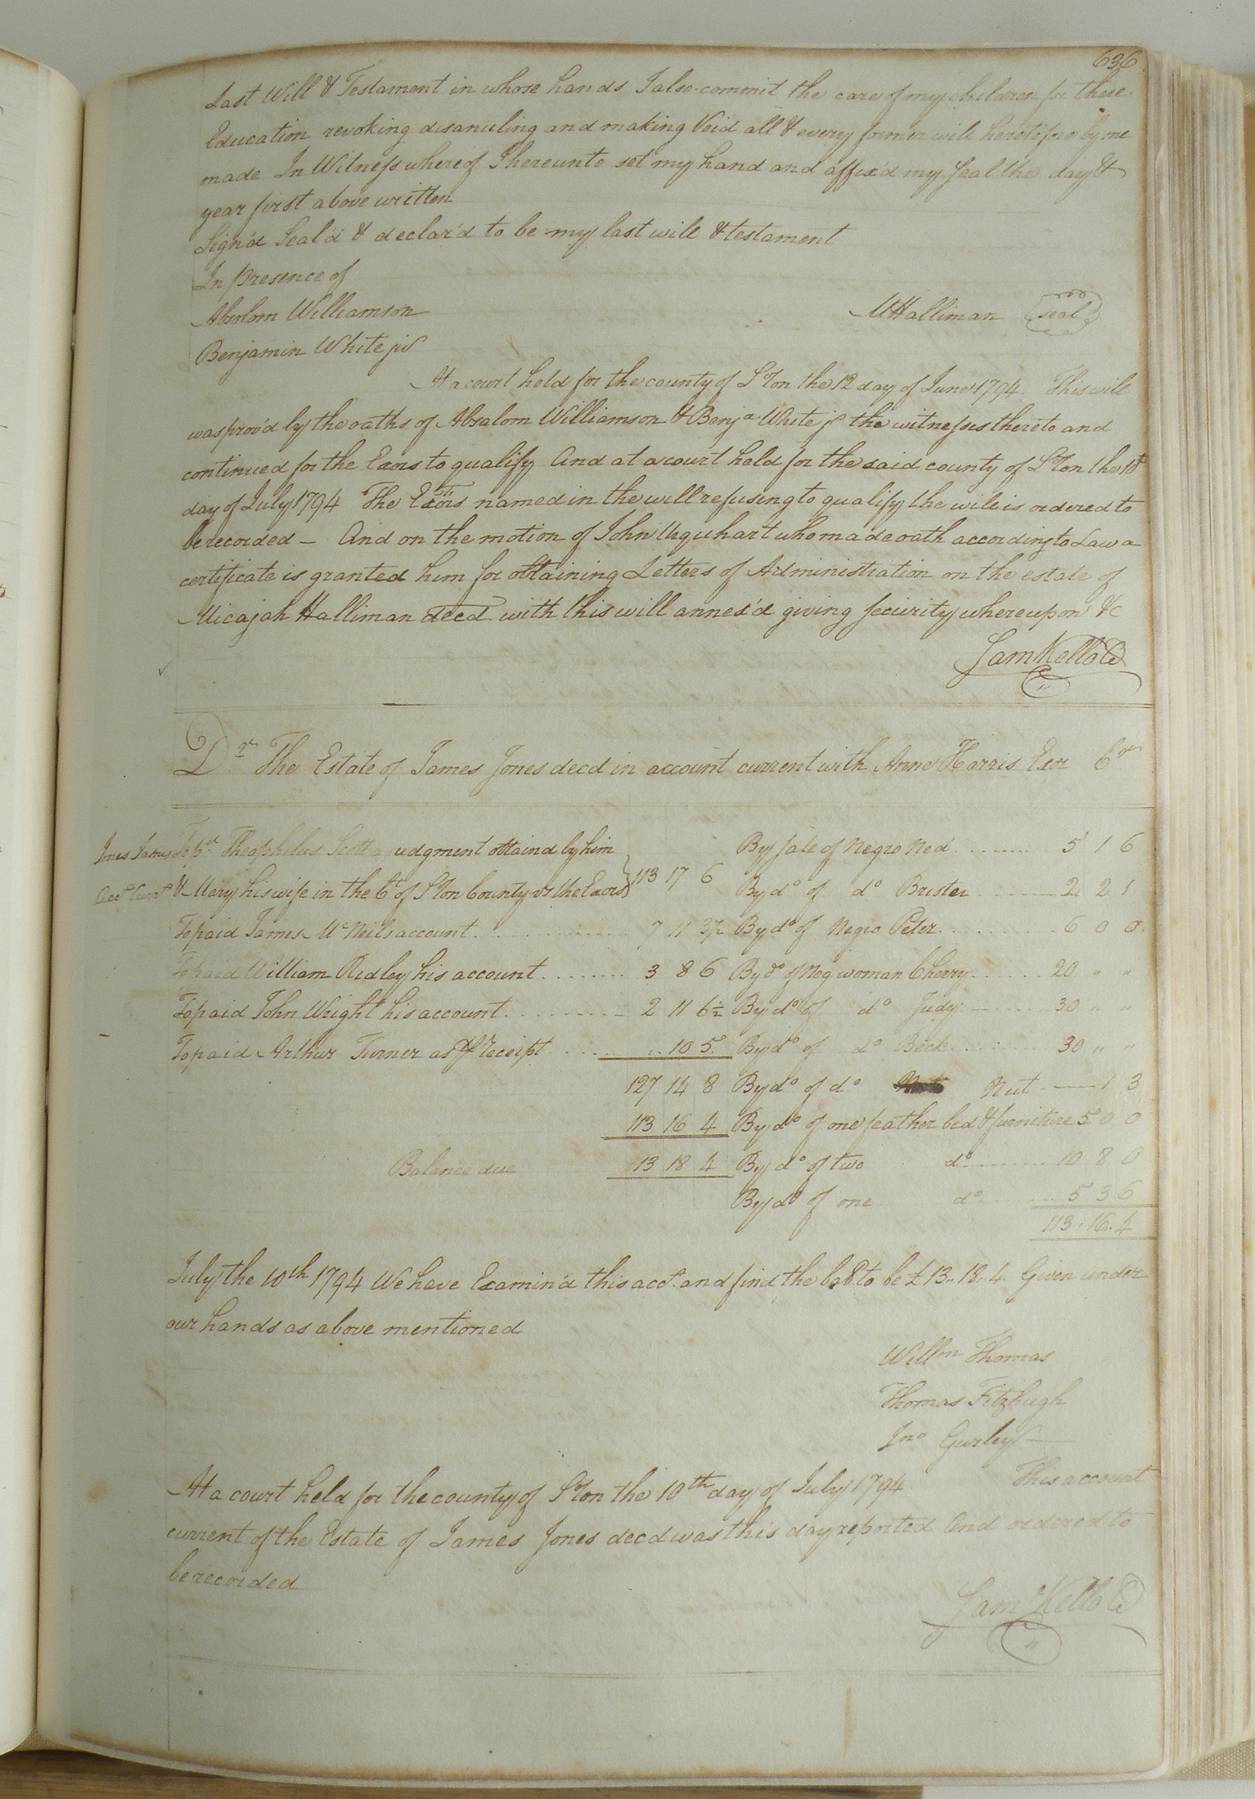 636
Last Will & Testament in whose hands I also commit the care of my children for there
Education revoking disanuling and making Void all & every former will heretofore by me
made In Witness whereof I hereunto set my hand and affix'd my Seal the day &
year first above written
Sign'd Seal'd & declar'd to be my last will & testament
In presence of
Absolom Williamson
MHalliman Seal
Benjamin White jur
At a court held for the county of S°ton the 12 day of June 1794. This will
was prov'd by the oaths of Absalom Williamson & Benja White jr the witnesses thereto and
continued for the Exors to qualify And at a court held for the said county of S°ton the 10th
day of July 1794 The Exors named in the will refusing to qualify the will is ordered to
be recorded — And on the motion of John Urquhart who made oath according to Law a
certificate is granted him for obtaining Letters of Administration on the estate of
Micajah Halliman decd with this will annex'd giving security whereupon &c
Sam Kello CC
Dr The Estate of James Jones decd in account current with Anne Harris Exr Cr
Jones James To pd Theophilus Scott judgment obtaind by him
Acct Curnt & Mary his wife in the Ct of S°ton County vs the Exors } 113 17 6
To paid James McNeils account 7 11 3½
To paid William Ridley his account 3 8 6
To paid John Wright his account 2 11 6½
To paid Arthur Turner as pr receipt .. 10 5
127 14 8
113 16 4
Balance due 13 18 4
By Sale of Negro Ned 5 1 6
By do of do Brister 2 2 1
By do of Negro Peter 6 0 0
By do of Neg woman Cherry 20 " "
By do of do Judy 30 " "
By do of do Beck 30 " "
By do of do Nut 1 3
By do of one feather bed & furniture 5 0 0
By do of two do 10 8 0
By do of one do 5 3 6
113.16.4
July the 10th 1794 We have Examin'd this acct and find the bal to be £13.18.4 Given under
our hands as above mentioned
Willm Thomas
Thomas Fitzhugh
Jno Gurley
At a court held for the county of S°ton the 10th day of July 1794 This account
current of the Estate of James Jones decd was this day reported And ordered to
be recorded
Sam Kello CC